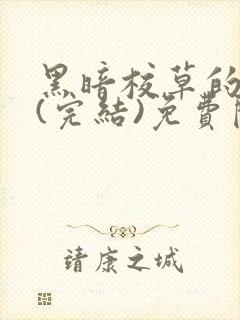 黑暗校草的
(完結)免費
靖康之城